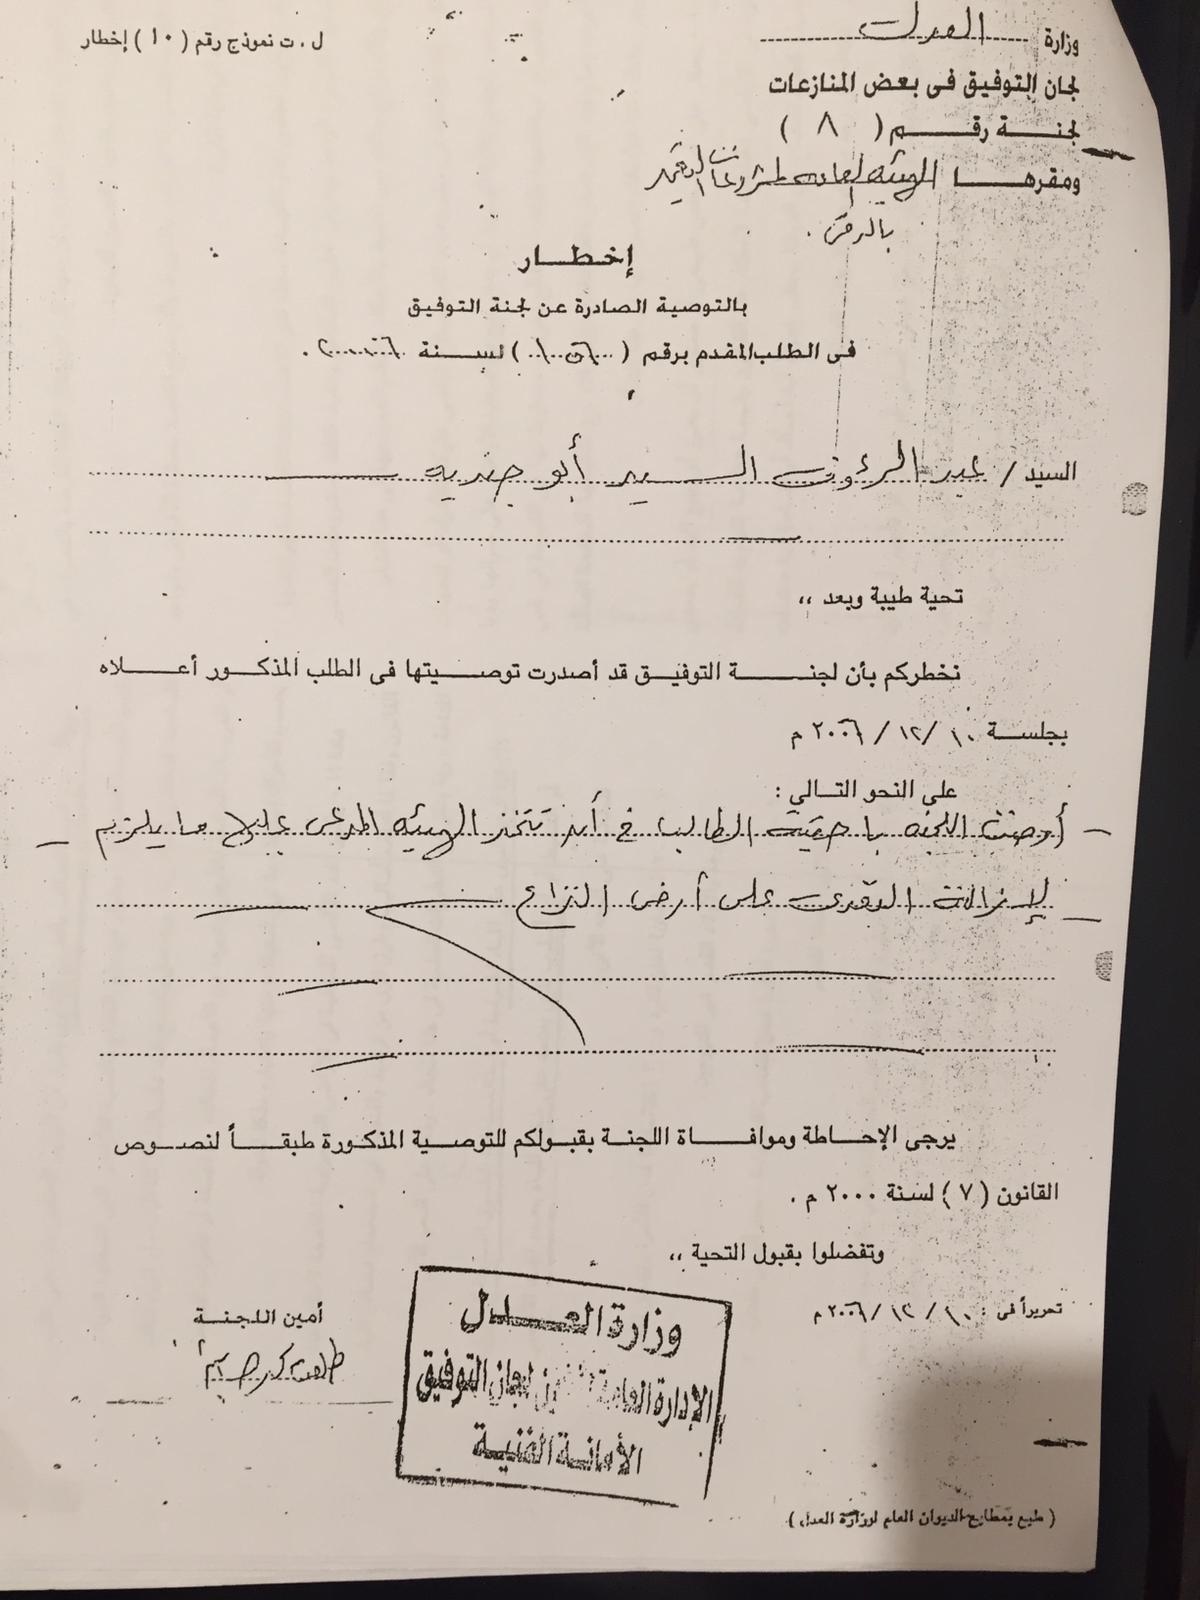 وزارة العدل
ل . ت نموذج رقم ( ١٠ ) إخطار
لجان التوفيق فى بعض المنازعات
لجنة رقم ( ٨ )
ومقرها الهيئه العامه لمشروعات التعمير
إخطار
بالتوصية الصادرة عن لجنة التوفيق
فى الطلب المقدم برقم ( ) لسنة ٢٠٠٦ .
السيد / عبد الرءوف السيد أبو
تحية طيبة وبعد ،،
نخطركم بأن لجنة التوفيق قد أصدرت توصيتها فى الطلب المذكور أعلاه
بجلسة ١٠ / ١٢ / ٢٠٠٦ م
على النحو التالي :
أوصت اللجنه باحقيه الطالب فى أن تتخذ الهيئه المدعى عليها ما يلزم
لإزالة التعدى على أرض النزاع
يرجى الإحاطة وموافاة اللجنة بقبولكم للتوصية المذكورة طبقاً لنصوص
القانون ( ٧ ) لسنة ٢٠٠٠ م .
وتفضلوا بقبول التحية ،،
تحريراً فى : ١٠ / ١٢ / ٢٠٠٦ م
أمين اللجنة
وزارة العدل
الإدارة العامة لجان التوفيق
الأمانة الفنية
( طبع بمطابع الديوان العام لوزارة العدل )